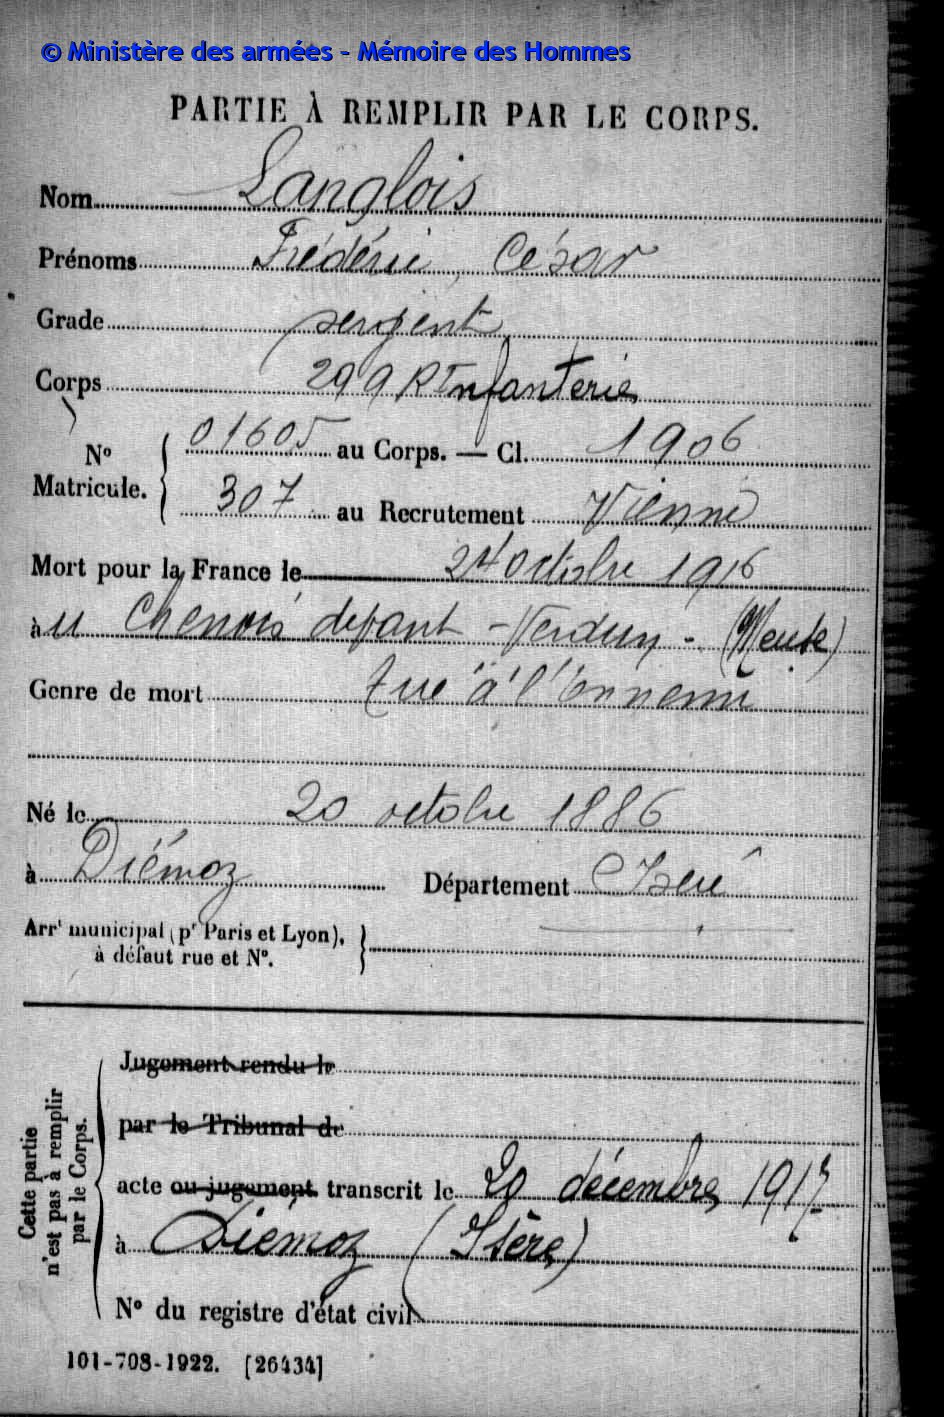 © Ministère des armées - Mémoire des Hommes
PARTIE À REMPLIR PAR LE CORPS.
Nom Langlois
Prénoms Frédéric, César
Grade sergent
Corps 299 R Infanterie
01605 au Corps. — Cl. 1906
Nº Matricule.
307 au Recrutement Vienne
Mort pour la France le 24 octobre 1916
à u Chenois devant - Verdun - (Meuse)
Genre de mort Tué à l'ennemi
Né le 20 octobre 1886
à Diémoz Département Isère
Arrt municipal (pr Paris et Lyon),
à défaut rue et Nº.
Cette partie
n'est pas à remplir
par le Corps.
Jugement rendu le
par le Tribunal de
acte ou jugement transcrit le 20 décembre 1917
à Diémoz (Isère)
Nº du registre d'état civil
101-708-1922. [26434]